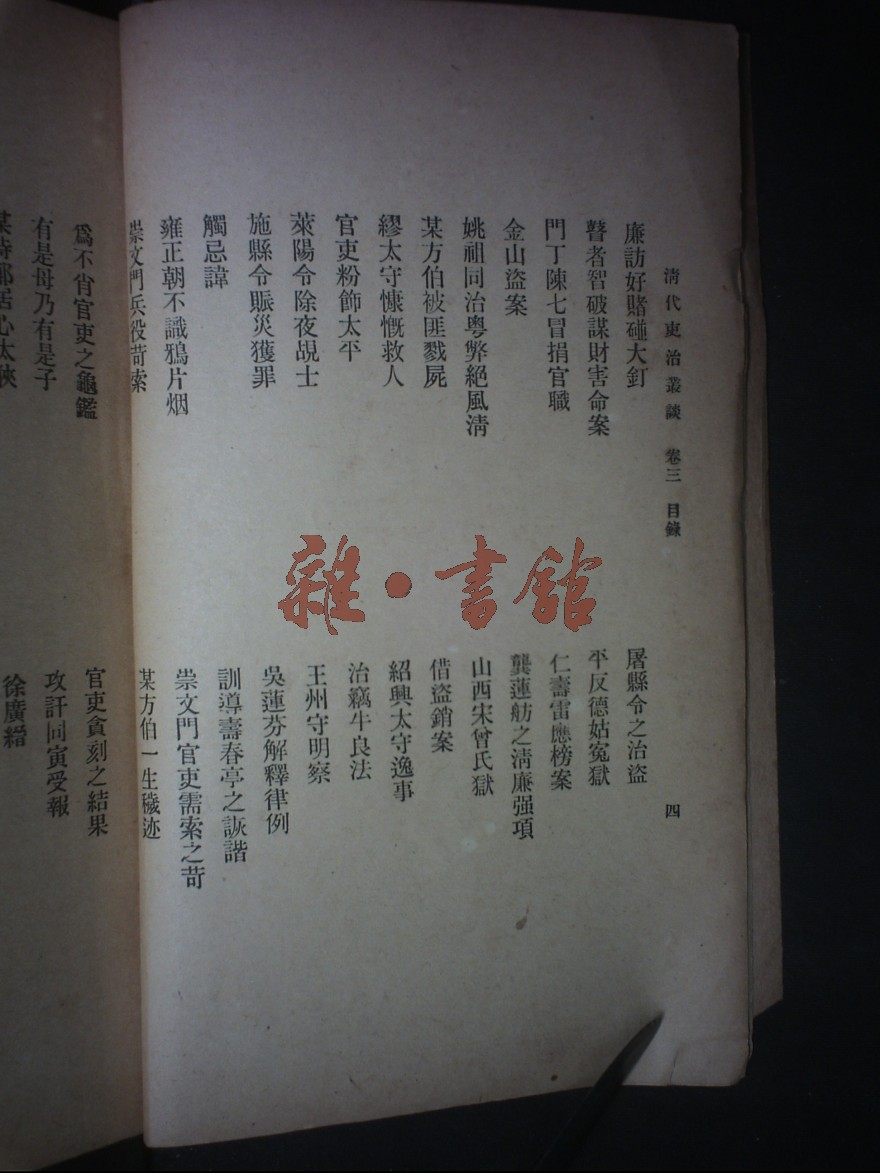 清代吏治叢談 卷三 目錄 四
廉訪好賭碰大釘
屠縣令之治盜
瞽者智破謀財害命案
平反德姑寃獄
門丁陳七冒捐官職
仁壽雷應榜案
金山盜案
龔蓮舫之淸廉强項
姚祖同治粵弊絕風淸
山西宋曾氏獄
某方伯被匪戮屍
借盜銷案
繆太守慷慨救人
紹興太守逸事
官吏粉飾太平
治竊牛良法
萊陽令除夜覘士
王州守明察
施縣令賑災獲罪
吳蓮芬解釋律例
觸忌諱
訓導壽春亭之詼諧
雍正朝不識鴉片烟
崇文門官吏需索之苛
崇文門兵役苛索
某方伯一生穢迹
爲不肖官吏之龜鑑
官吏貪刻之結果
有是母乃有是子
攻訐同寅受報
某侍郎居心太狹
徐廣縉
雜·書館